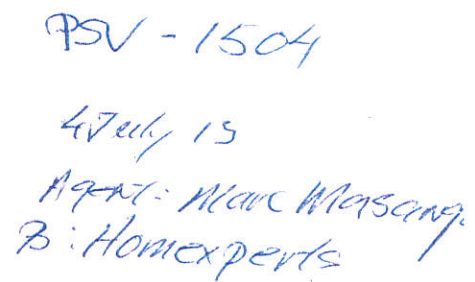 PSV - 1504
4 July 15
Agent: Marc Masang
B: Homexperts